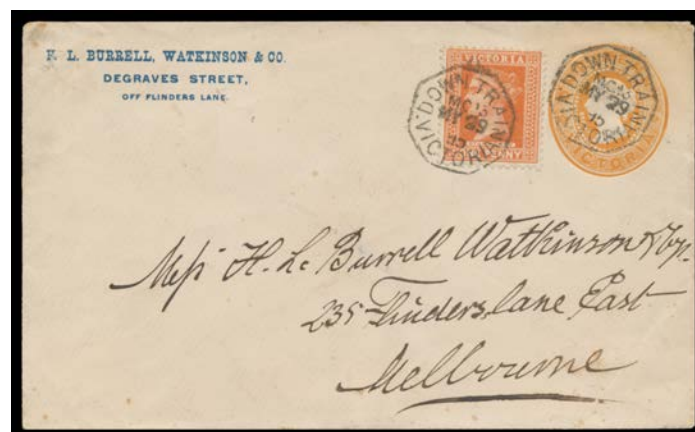 H. L. BURRELL, WATKINSON & CO.
DEGRAVES STREET,
OFF FLINDERS LANE.
VICTORIA
PENNY
DOWN TRAIN
MY 29
95
VICTORIA
DOWN TRAIN
MY 29
95
VICTORIA
VICTORIA
H. L. Burrell Watkinson & Coy.
235 Flinders lane East
Melbourne